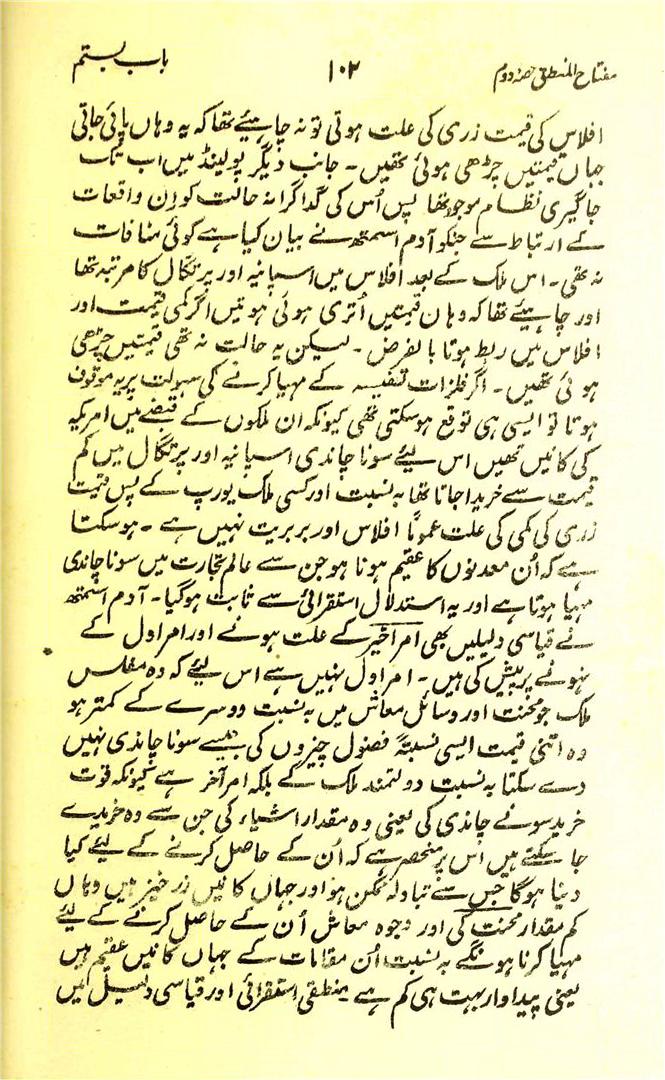 مفتاح المنطق حصہ دوم
۱۰۲
باب بستم
افلاس کی قیمت زری کی علت ہوتی تو نہ چاہیئے تھا کہ یہ وہاں پائی جاتی
جہاں قیمتیں چڑھی ہوئی تھیں ۔ جانب دیگر پولینڈ میں اب تک
جاگیری نظام موجود تھا پس اُس کی گداگرانہ حالت کو اِن واقعات
کے ارتباط سے جنکو آدم اسمتھ نے بیان کیا ہے کوئی منافات
نہ تھی ۔ اس ملک کے بعد افلاس میں اسپانیہ اور پرتگال کا مرتبہ تھا
اور چاہیئے تھا کہ وہاں قیمتیں اُتری ہوئی ہوتیں اگر کمی قیمت اور
افلاس میں ربط ہوتا بالفرض ۔ لیکن یہ حالت نہ تھی قیمتیں چڑھی
ہوئی تھیں ۔ اگر فلزات نفیسہ کے مہیا کرنے کی سہولت پر یہ موقوف
ہوتا تو ایسی ہی توقع ہوسکتی تھی کیونکہ ان ملکوں کے قبضے میں امریکہ
کی کانیں تھیں اس لیئے سونا چاندی اسپانیہ اور پرتگال میں کم
قیمت سے خریدا جاتا تھا بہ نسبت اور کسی ملک یورپ کے پس قیمت
زری کی کمی کی علت عموماً افلاس اور بربریت نہیں ہے ۔ ہوسکتا
ہے کہ اُن معدنوں کا عقیم ہونا ہو جن سے عالم تجارت میں سونا چاندی
مہیا ہوتا ہے اور یہ استدلال استقرائی سے ثابت ہوگیا ۔ آدم اسمتھ
نے قیاسی دلیلیں بھی امر اخیر کے علت ہونے اور امر اول کے
نہونے پر پیش کی ہیں ۔ امر اول نہیں ہے اس لیئے کہ وہ مفلس
ملک جو محنت اور وسائل معاش میں بہ نسبت دوسرے کے کمتر ہو
وہ اتنی قیمت ایسی نسبتہً فضول چیزوں کی جیسے سونا چاندی نہیں
دے سکتا بہ نسبت دولتمند ملک کے بلکہ امر آخر ہے کیونکہ قوت
خرید سونے چاندی کی یعنی وہ مقدار اشیاء کی جن سے وہ خریدے
جا سکتے ہیں اس پر منحصر ہے کہ اُن کے حاصل کرنے کے لیئے کیا
دینا ہوگا جس سے تبادلہ ممکن ہو اور جہاں کانیں زرخیز ہیں وہاں
کم مقدار محنت کی اور وجوہ معاش اُن کے حاصل کرنے کے لیئے
مہیا کرنا ہونگے بہ نسبت اُن مقامات کے جہاں کانیں عقیم ہیں
یعنی پیداوار بہت ہی کم ہے منطقی استقرائی اور قیاسی دلیلیں